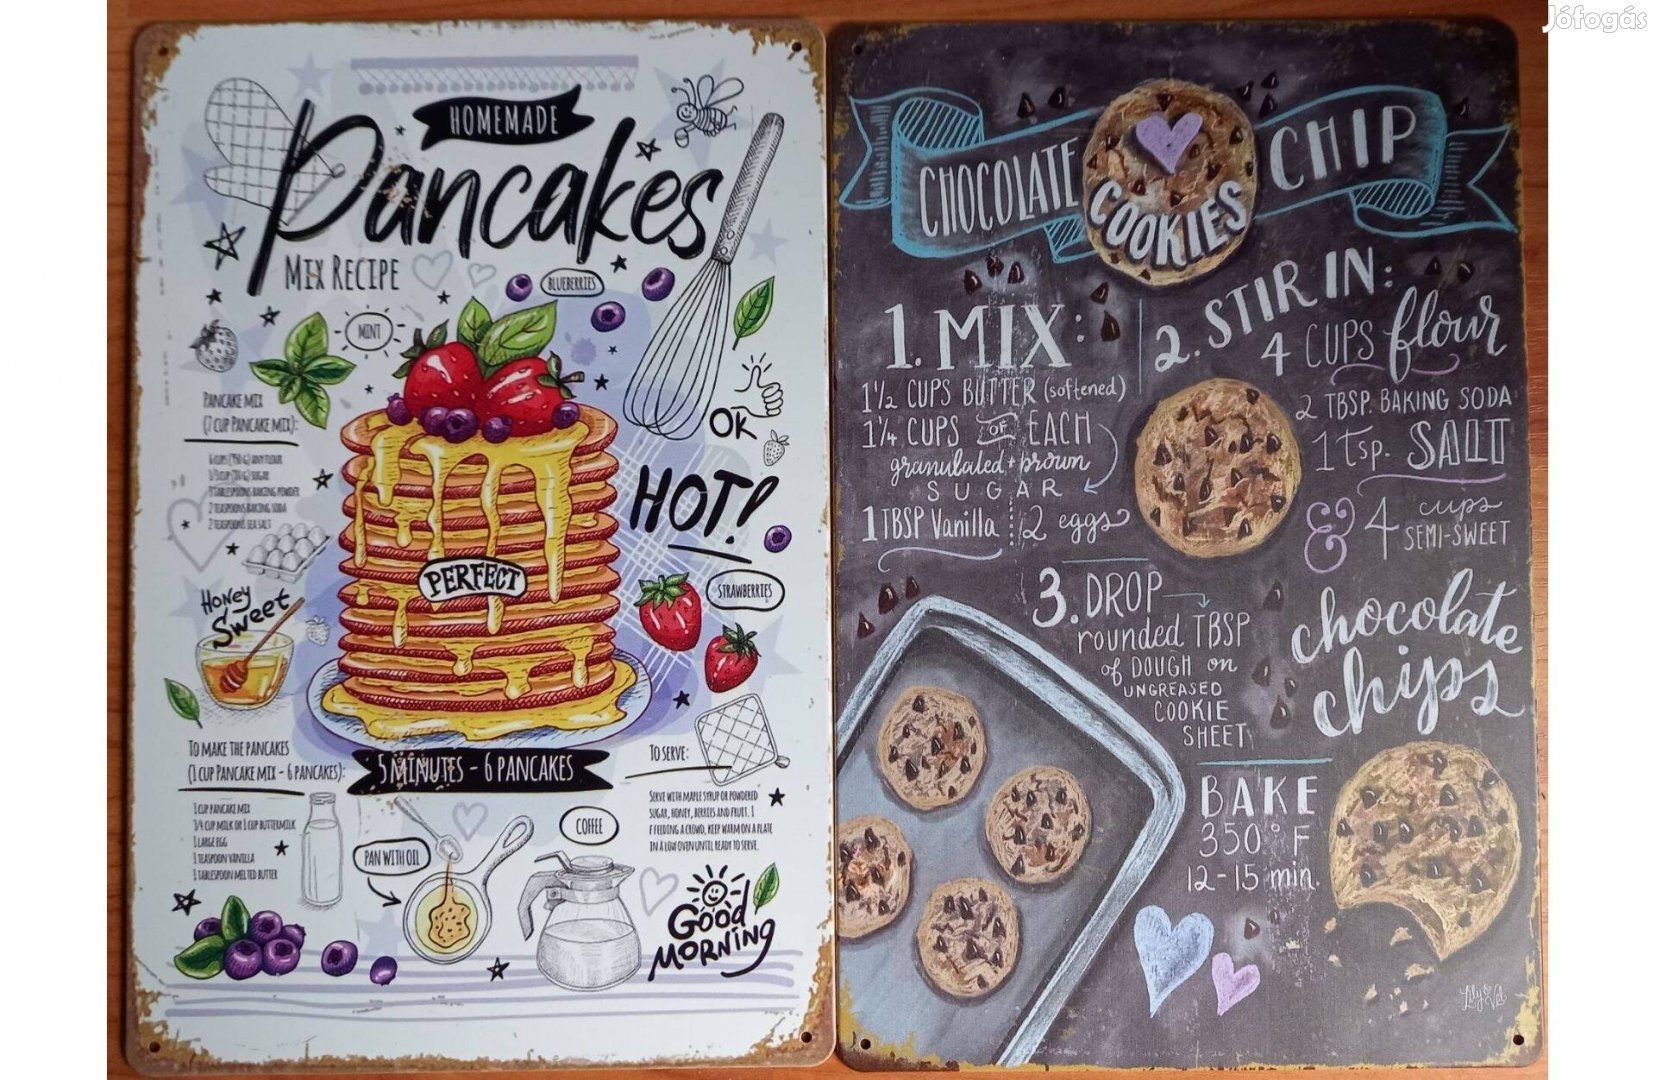 Jófogás
HOMEMADE
Pancakes
MIX RECIPE
BLUEBERRIES
MINT
PANCAKE MIX
(7 CUP PANCAKE MIX):
OK
HOT!
2 TEASPOONS BAKING SODA
2 TEASPOONS SEA SALT
PERFECT
STRAWBERRIES
HONEY
SWEET
TO MAKE THE PANCAKES
(1 CUP PANCAKE MIX - 6 PANCAKES):
5 MINUTES - 6 PANCAKES
TO SERVE:
1 CUP PANCAKE MIX
3/4 CUP MILK OR 1 CUP BUTTERMILK
1 LARGE EGG
1 TEASPOON VANILLA
1 TABLESPOON MELTED BUTTER
PAN WITH OIL
COFFEE
SERVE WITH MAPLE SYRUP OR POWDERED
SUGAR, HONEY, BERRIES AND FRUIT. I
F FEEDING A CROWD, KEEP WARM ON A PLATE
IN A LOW OVEN UNTIL READY TO SERVE.
GOOD
MORNING
CHOCOLATE CHIP
COOKIES
1. MIX:
1 1/2 CUPS BUTTER (softened)
1 1/4 CUPS OF EACH
granulated + brown
SUGAR
1 TBSP Vanilla 2 eggs
2. STIR IN:
4 CUPS flour
2 TBSP. BAKING SODA
1 tsp. SALT
& 4 cups
SEMI-SWEET
chocolate
chips
3. DROP
rounded TBSP
of DOUGH on
UNGREASED
COOKIE
SHEET
BAKE
350° F
12-15 min.